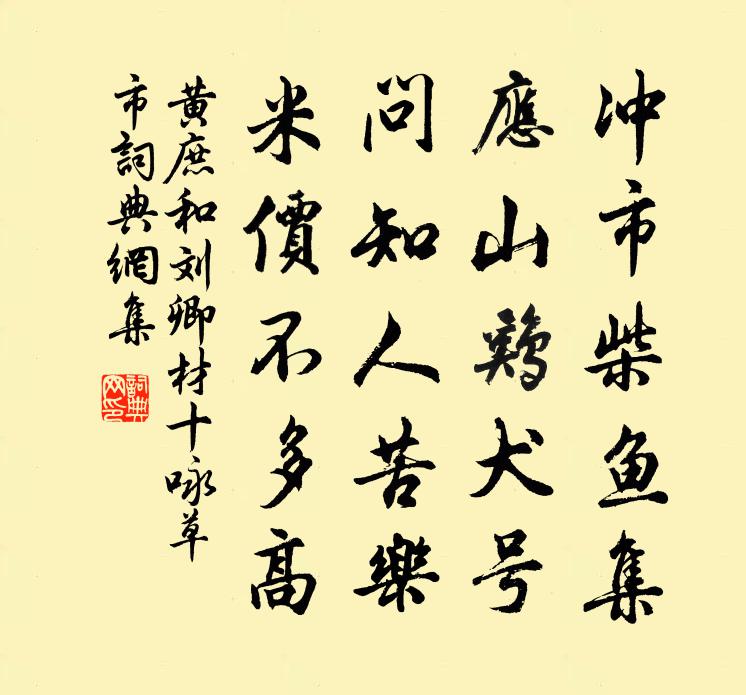 冲市柴鱼集
應山鷄犬号
問知人苦樂
米價不多高
黄庶和刘卿材十咏草
市詞典網集
詞典
网印